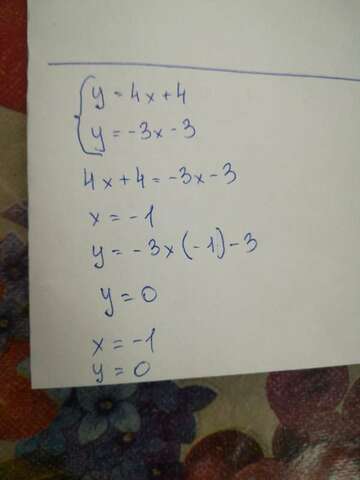 y = 4x + 4
y = -3x - 3
4x + 4 = -3x - 3
x = -1
y = -3x(-1) - 3
y = 0
x = -1
y = 0